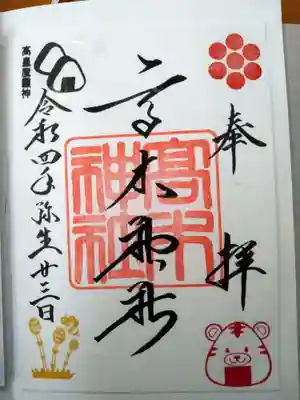 奉拝
高木神社
高木神社
令和四年弥生廿三日
高皇産靈神